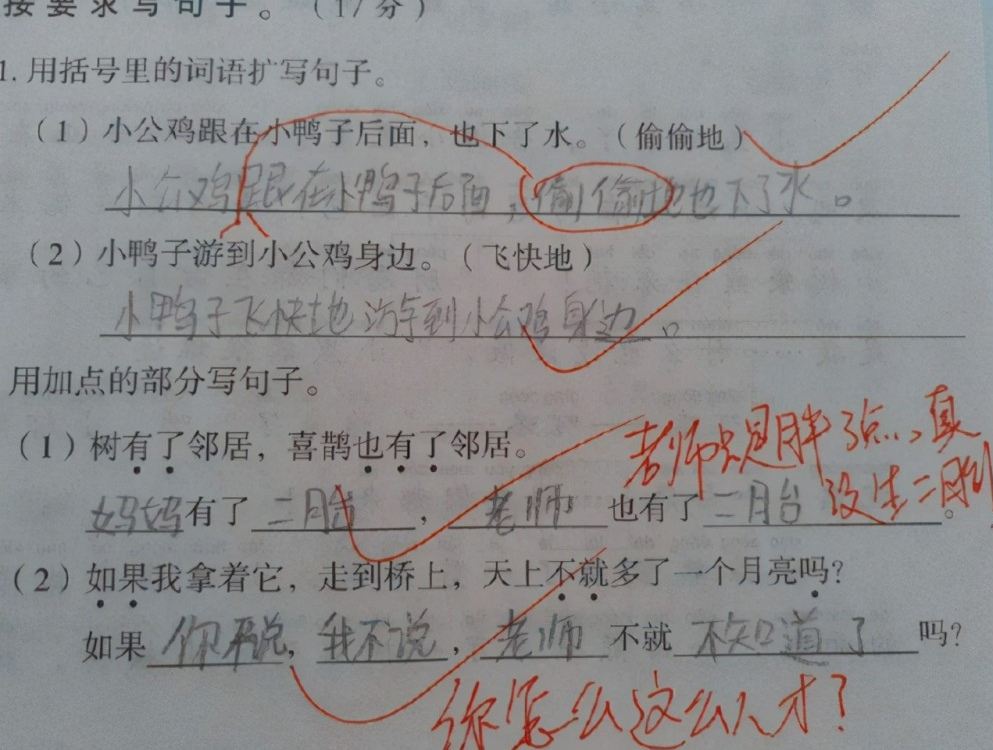 按要求写句子。（17分）
1. 用括号里的词语扩写句子。
（1）小公鸡跟在小鸭子后面，也下了水。（偷偷地）
小公鸡跟在小鸭子后面，偷偷地也下了水。
（2）小鸭子游到小公鸡身边。（飞快地）
小鸭子飞快地游到小公鸡身边。
用加点的部分写句子。
（1）树有了邻居，喜鹊也有了邻居。
老师只是胖了点，真
没生二胎
妈妈有了二胎，老师也有了二胎。
（2）如果我拿着它，走到桥上，天上不就多了一个月亮吗？
如果你不说，我不说，老师不就不知道了吗？
你怎么这么人才？